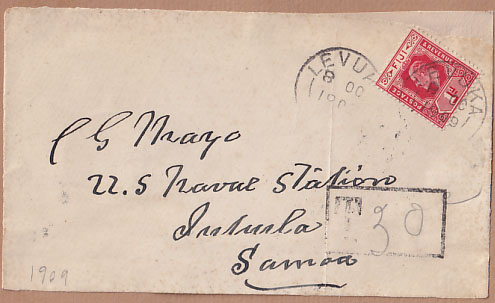 LEVUKA
8 OC
190
FIJI
POSTAGE & REVENUE
C G Mayo
U.S Naval Station
Tutuila
Samoa
T 30
1909